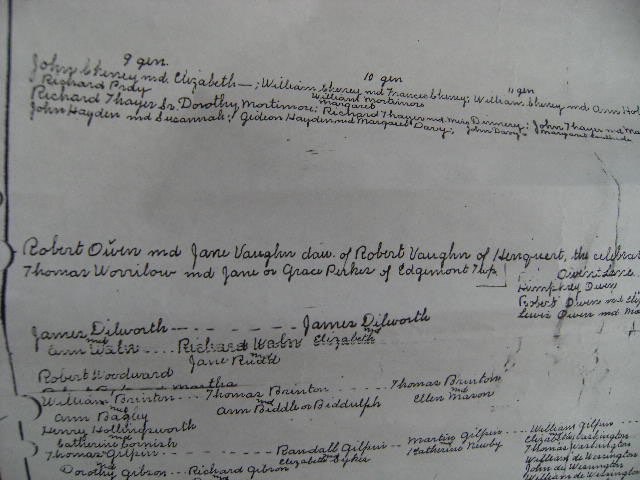 9 gen. 10 gen 11 gen
John Cheney md. Elizabeth —; William Cheney md Frances Cheney; William Cheney md Ann Hol
Richard Pray William Mortimore
Richard Thayer Sr. Dorothy Mortimore; Margaret Richard Thayer md. John Thayer md Ma
John Hayden md Susannah; Gideon Hayden md Margaret Davy; John Davy Margaret
Robert Owen md Jane Vaughn dau. of Robert Vaughn of Hengwert, the celebrat
Thomas Worrilow md Jane or Grace Perker of Edgmont Twp Owen Lane
Humphrey Owen
Robert Owen md Eli
Lewis Owen md Ma
James Dilworth - - - - - - - James Dilworth
md md
Ann Waln .... Richard Waln Elizabeth
Jane Rudd
Robert Woodward
Martha
William Brinton - - - Thomas Brinton - - - - Thomas Brinton
md md md
Ann Bagley Ann Biddle or Biddulph Ellen Mason
Henry Hollingsworth
md
Catherine Cornish William Gilpin
Thomas Gilpin - - - - Randall Gilpin - - Martin Gilpin - - - Elizabeth Washington
md Elizabeth Dykes Katherine Newby Thomas Washington
Dorothy Gibson ... Richard Gibson William de Wessington
John de Wessington
William de Wessington